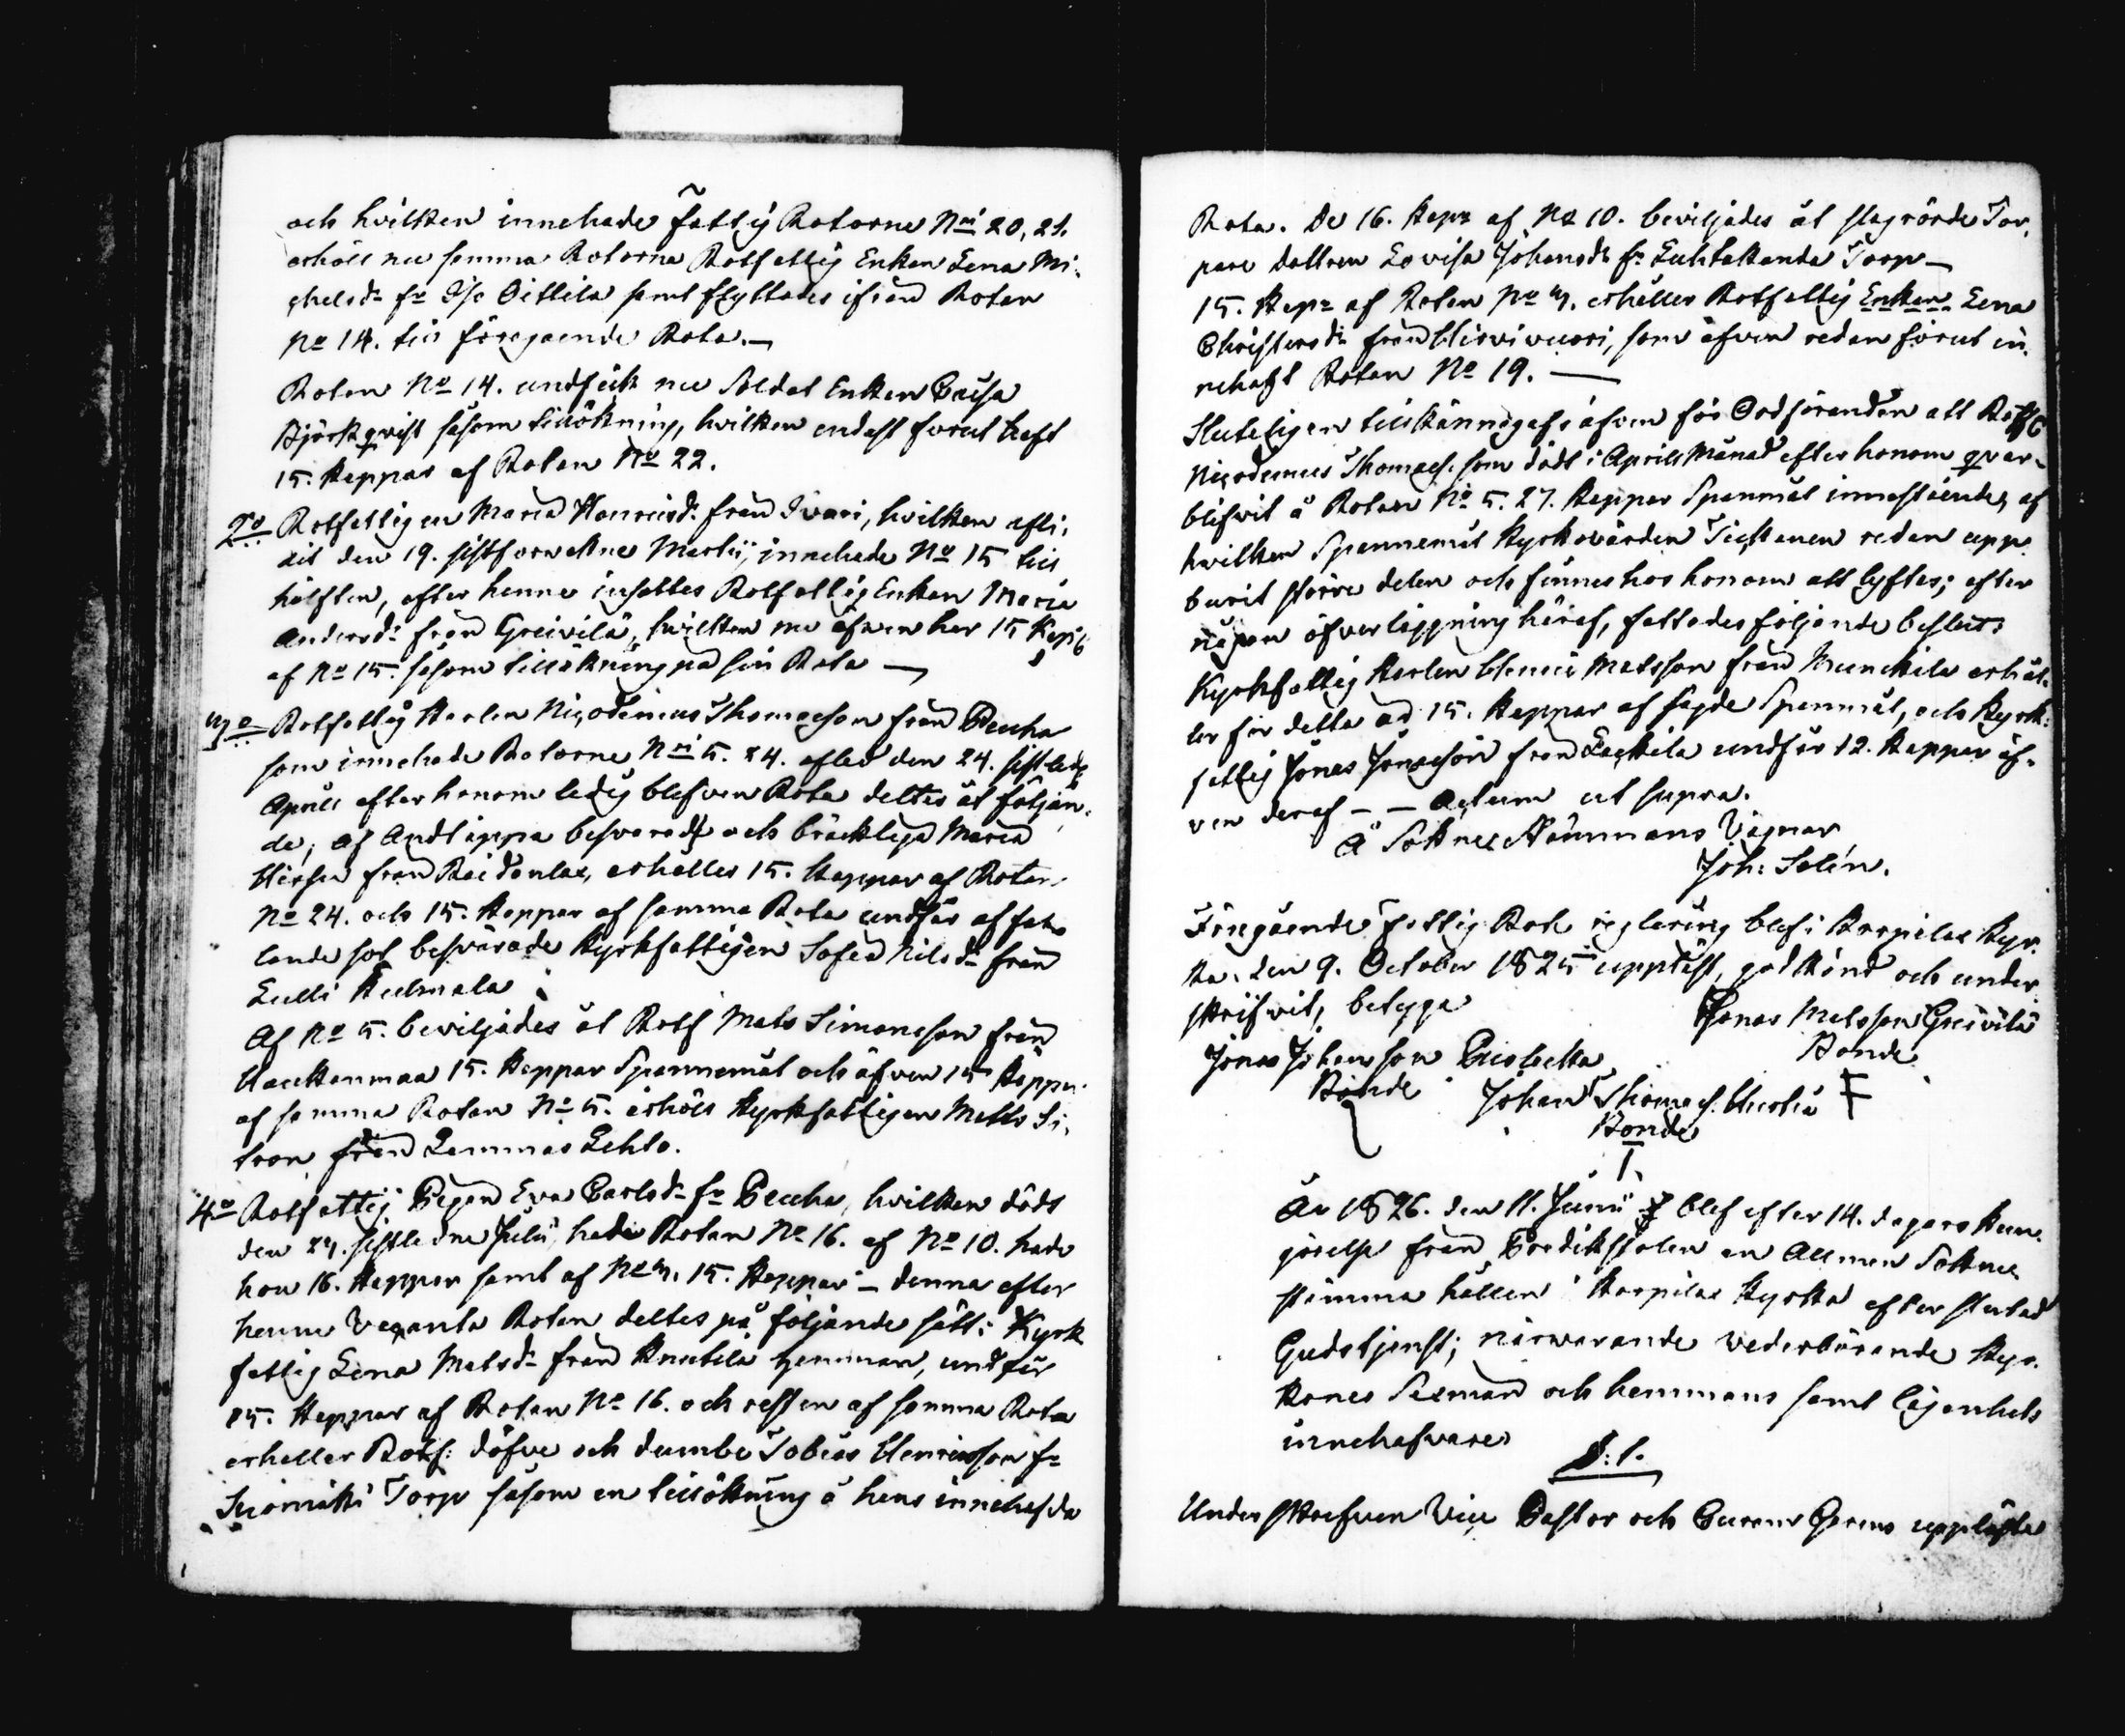 och hvilken innehade fattig Rotorne Nri 20, 21.
erhöll nu samma Rotorna Rotfattig Enkan Lena Mi-
chelsdr fr Pittila samt flyttades ifrån Rotan
No 14. till föregående Rota.—
Rotan No 14. undfick nu Soldat Enkan Caisa
Björkqvist såsom tillökning, hvilken endast förut haft
15. Kappar af Rotan No 22.
2o Rotfattigen Maria Henricsdr från Ivari, hvilken afli-
dit den 19. sistforvekne Martii, innehade No 15 till
hälften, efter henne insattes Rotfattig Enkan Maria
Andersdr från Greivilä, hvilken nu äfven har 15 Kapp
af No 15. såsom tillökning på sin Rota —
3o Rotfattig Karlen Nicodemus Thomasson från Peuha
som innehade Rotorne Nri 5. 24. afled den 24. sistledne
Aprill efter honom ledig blefven Rota deltes åt följan-
de; af Andtäppa besvarad och bräcklige Maria
Hirfin från Raidanlax, erhålles 15. Kappar af Rotan
No 24. och 15. Kappar af samma Rota undfår af fal-
lande sot besvärade Kyrkfattigen Sofia Nilsdr från
Lulli Kulmala
Af No 5. beviljades åt Rotf Mats Simonsson från
Haukanmaa 15. Kappar Spannemål och äfven 15 Kappar
af samma Rotan No 5. erhöll Kyrkfattigen Matts Si-
tron från Lammas Lehto.
4o Rotfattig Pigan Eva Carlsdr fr Peuha, hvilken dödt
den 23. sistledne Julii hade Rotan No 16. af No 10. hade
hon 16. Kappar samt af No 3. 15. Kappar — denna efter
henne Vacanta Rotan deltes på följande sätt: Kyrk
fattig Lena Matsdr från Knutila hemman, undfår
15. Kappar af Rotan No 16. och resten af samma Rota
erhåller Rotf: döfve och dumbe Tobias Henricsson fr
Suomätti Torp såsom en tillökning å hans innehafda
Rota. De 16. Kapr af No 10. beviljades åt slagrörde Tor-
pare dottren Lovisa Johansdr fr Luhtakanda Torp —
15. Kapr af Rotan No 3. erhåller Rotfattig Enkan Lena
Christersdr från Hirvivuori, som äfven redan förut in-
nehaft Rotan No 19. —
Sluteligen tillkännagafs äfven för Ordföranden att Rotf
Nicodemus Thomass. som dödt i Aprill Månad efter honom qvar-
blifvit å Rotan No 5. 27. Kappar Spanmål innestående, af
hvilken Spannemål Kyrkovärden Tickanen redan upp-
burit större delen och finnes hos honom att lyftas; efter
någon öfverläggning häraf, fattades följande beslut:
Kyrkfattig Karlen Henric Matsson från Munckila erhål-
ler för detta år 15. Kappar af sagde Spanmål, och Kyrk-
fattig Jonas Jonasson från Lackila undfår 12. Kappar äf-
ven deraf — — Actum ut supra.
Å Sokne Stämmans Vägnar
Joh: Solén.
Föregående fattig Rote reglering blef i Karpilax Kyr-
ka den 9. October 1825 uppläst, godkänd och under-
skrifvit, betyga
Jonas Matsson Greivilä
Bonde
Jonas Johansson
Bonde
Johan Thomass.
Bonde
År 1826. den 11. Junii blef efter 14. dagars Kun-
görelse från Predikstolen en Allmen Sokne
stämma hållen i Karpilax Kyrka efter slutad
Gudstjenst; närvarande vederbörande Kyr-
kones Sexman och hemmans samt lägenhets
innehafvare
S: 1.
Underskrefven Vice Pastor och Curam Gerens uppläste